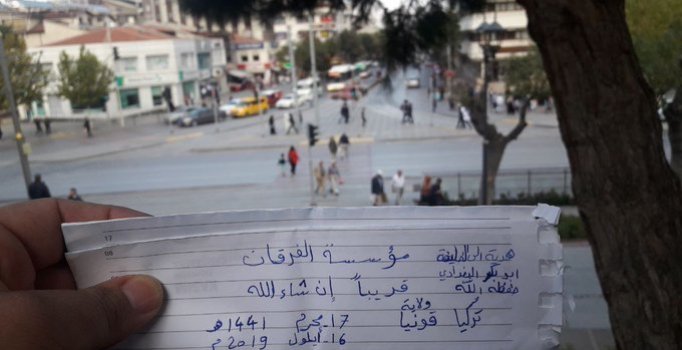 17
08
مؤسسة الفرقان
هدية إلى الخليفة
ابو بكر البغدادي
حفظه الله
قريباً إن شاء الله
ولاية
تركيا قونيا
17-محرم 1441 هـ
16-أيلول 2019 م